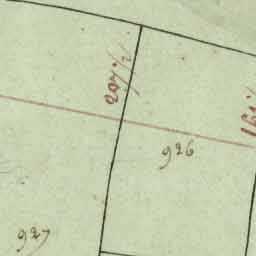 207½
926
927